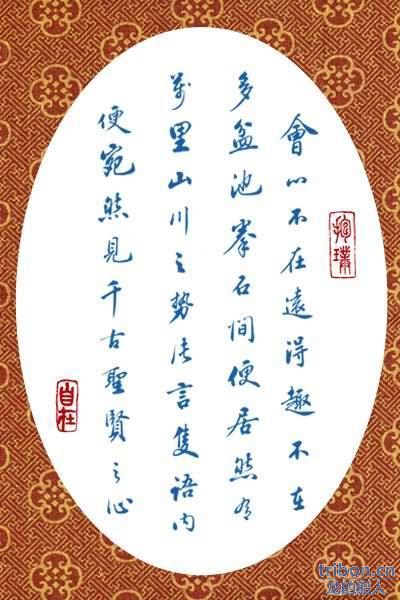 會心不在遠得趣不在
多盆池拳石間便居然有
萬里山川之勢片言隻語內
便宛然見千古聖賢之心
抱璞
自在
tribon.cn
龙的船人